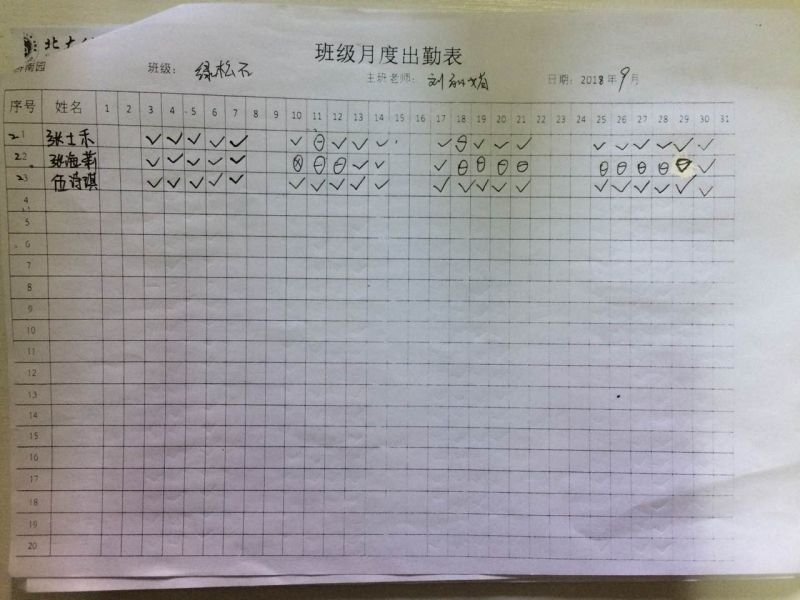 北大
班级月度出勤表
南园 班级： 绿松石 主班老师： 日期：2018年9月
序号 姓名 1 2 3 4 5 6 7 8 9 10 11 12 13 14 15 16 17 18 19 20 21 22 23 24 25 26 27 28 29 30 31
21 张士禾 ✓ ✓ ✓ ✓ ✓ ✓ ⊖ ✓ ✓ ✓ ✓ ⊖ ✓ ✓ ✓ ✓ ✓ ✓ ✓ ✓ ✓
22 张海莉 ✓ ✓ ✓ ✓ ✓ ⊗ ⊖ ⊖ ✓ ✓ ✓ ⊖ ⊖ ⊖ ⊖ ⊖ ⊖ ⊖ ⊖ ⊖ ✓
23 伍诗琪 ✓ ✓ ✓ ✓ ✓ ✓ ✓ ✓ ✓ ✓ ✓ ✓ ✓ ✓ ✓ ✓ ✓ ✓ ✓ ✓ ✓
4
5
6
7
8
9
10
11
12
13
14
15
16
17
18
19
20